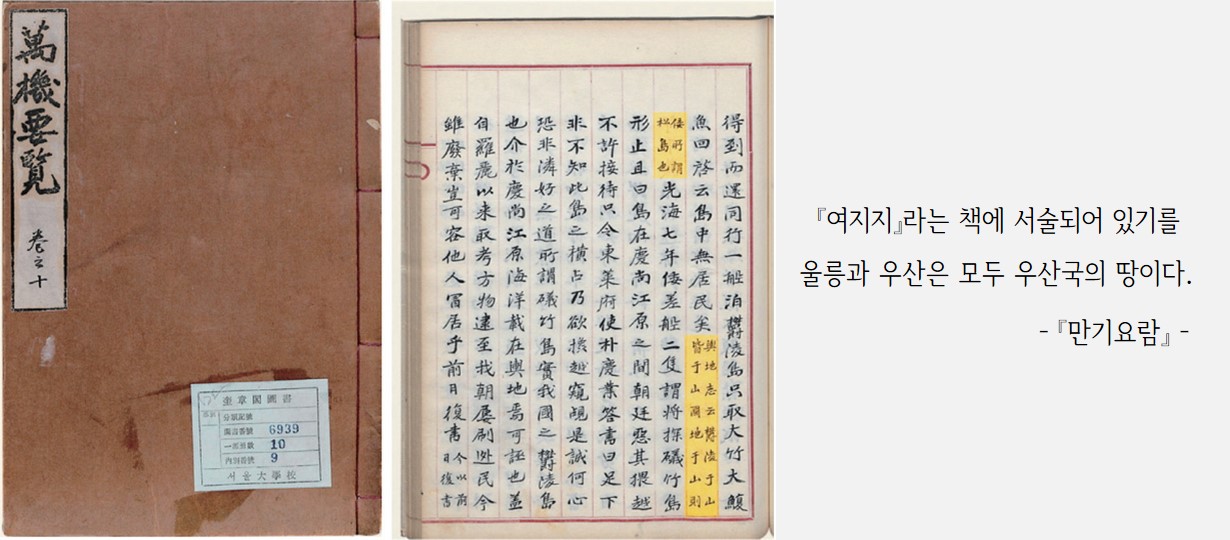 萬機要覽
卷之十
奎章閣圖書
分類記號
圖書番號 6939
一部冊數 10
內別番號 9
서울大學校
得到而還同行一船泊欝陵島只取大竹大鰒
魚回啓云島中無居民矣輿地志云欝陵于山
皆于山國地于山則
倭所謂
松島也光海七年倭差船二隻謂將探礒竹島
形止且曰島在慶尚江原之間朝廷惡其猥越
不許接待只令東萊府使朴慶業答書曰足下
非不知此島之橫占乃欲攙越窺覘是誠何心
恐非隣好之道所謂礒竹島實我國之欝陵島
也介於慶尚江原海洋載在輿地焉可誣也盖
自羅麗以來取考方物逮至我朝屢刷逃民今
雖廢棄豈可容他人冒居乎前日復書今以前
日復書
『여지지』라는 책에 서술되어 있기를
울릉과 우산은 모두 우산국의 땅이다.
-『만기요람』-